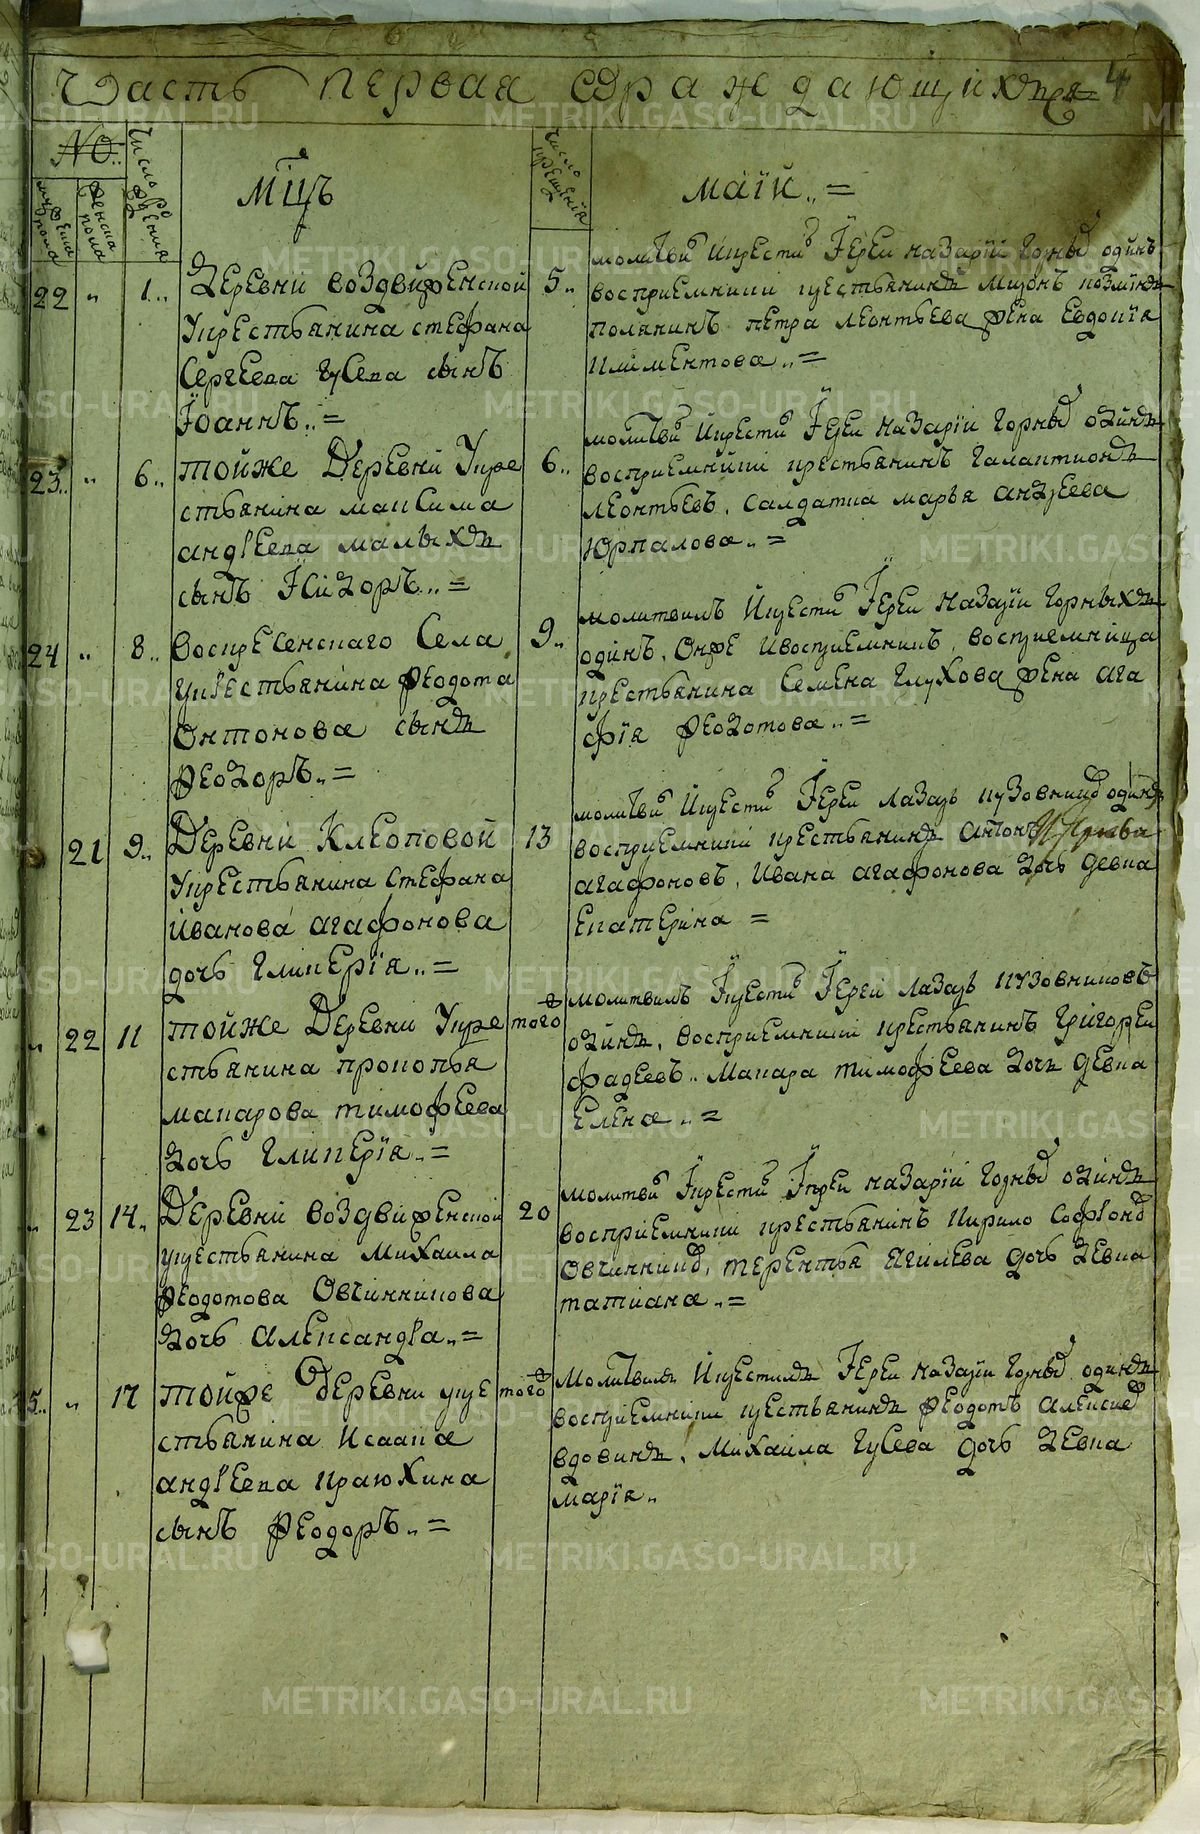 Часть первая ѡраждающихся 4
№
мужеска пола
женска пола
Число рождения
Мцъ
Число крещения
маїи ,, =
22 ,, 1 ,,
Деревни воздвиженской
Укрестьянина стефана
Сергеева Гусева сынъ
Їоаннъ ,, =
5 ,,
молитви Икрести Їерей назарїй Горных одинъ
восприемники крестьянинъ Миронъ
Полянинъ петра леонтьева жена Евдокїя
Климентова ,, =
23 ,, 6 ,,
тойже Деревни Укре
стьянина максима
андреева малыхъ
сынъ Їсидоръ ,, =
6 ,,
молитви Икрести Їерей назарїй Горных одинъ
восприемники крестьянинъ Галактионъ
леонтьевъ, Салдатка марья андреева
Юрпалова ,, =
24 ,, 8 ,,
воскресенскаго Села
Укрестьянина Феодота
Онтонова сынъ
Феодоръ ,, =
9 ,,
молитвилъ Икрести Їерей назарїи Горныхъ
одинъ, Онже Ивосприемникъ, восприемница
крестьянина Семена Глухова жена ага
фїя Феодотова ,, =
21 9 ,,
Деревни Клеоповой
Укрестьянина Стефана
Иванова агафонова
дочь Гликерїя ,, =
13
молитви Икрести Їерей лазарь кузовников одинъ
восприемники крестьянинъ антонъ
агафоновъ, Ивана агафонова дочь девка
Екатерина =
,, 22 11
тойже Деревни Укре
стьянина прокопья
макарова тимофеева
дочь Гликерїя ,, =
того ж
молитвилъ Їкрести Їерей лазарь кузовниковъ
одинъ, восприемники крестьянинъ Григорей
фадеевъ ,, Макара тимофеева дочь девка
Елена ,, =
,, 23 14 ,,
Деревни воздвиженской
укрестьянина Михаила
Феодотова Овчинникова
дочь александра ,, =
20
молитви Їкрести Їерей назарїй Горных одинъ
восприемники крестьянинъ Кирило Софронов
Овчинников, терентья Якилева дочь девка
татиана ,, =
5 ,, ,, 17
тойже деревни укре
стьянина Исаака
андреева Краюхина
сынъ Феодоръ ,, =
того ж
Молитвилъ Икрестилъ Їерей назарїи Горных одинъ
восприемники крестьянинъ Феодотъ алексиев
вдовинъ, Михаила Гусева дочь девка
марїя ,,
METRIKI.GASO-URAL.RU